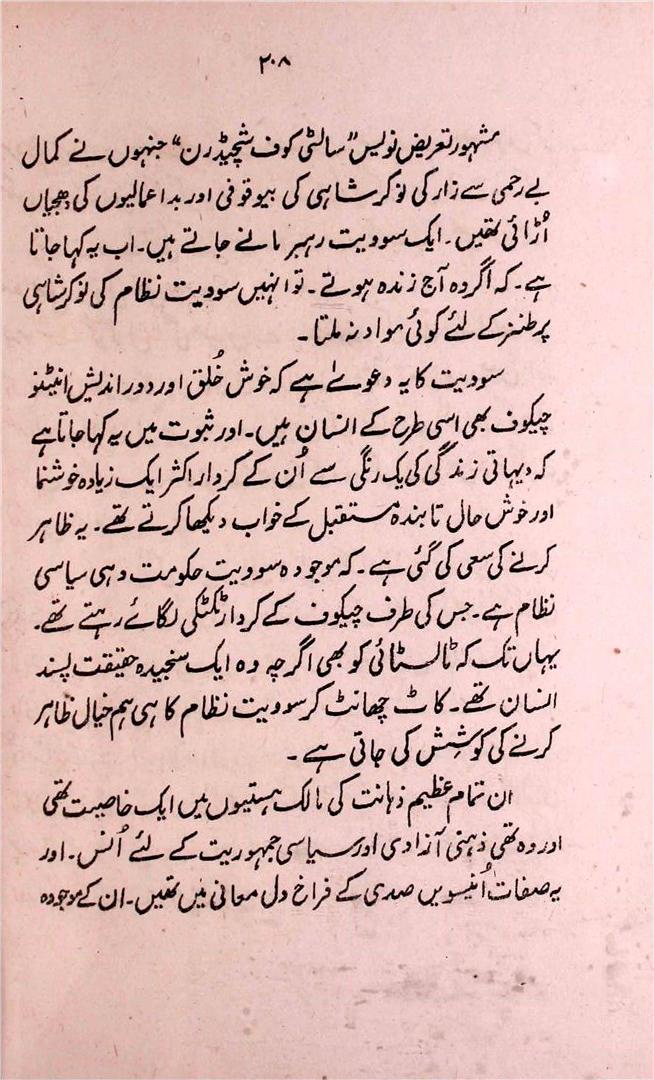 ۲۰۸
مشہور تعریض نویس "سالٹی کوف شچیڈرن" جنہوں نے کمال
بے رحمی سے زار کی نوکر شاہی کی بیوقوفی اور بداعمالیوں کی دھجیاں
اُڑائی تھیں۔ ایک سوویت رہبر مانے جاتے ہیں۔ اب یہ کہا جاتا
ہے۔ کہ اگر وہ آج زندہ ہوتے۔ تو انہیں سوویت نظام کی نوکرشاہی
پر طنز کے لئے کوئی مواد نہ ملتا۔
سوویت کا یہ دعویٰ ہے کہ خوش خُلق اور دور اندیش انیٹنو
چیکوف بھی اسی طرح کے انسان ہیں۔ اور ثبوت میں یہ کہا جاتا ہے
کہ دیہاتی زندگی کی یک رنگی سے اُن کے کردار اکثر ایک زیادہ خوشنما
اور خوش حال تابندہ مستقبل کے خواب دیکھا کرتے تھے۔ یہ ظاہر
کرنے کی سعی کی گئی ہے۔ کہ موجودہ سوویت حکومت وہی سیاسی
نظام ہے۔ جس کی طرف چیکوف کے کردار ٹکٹکی لگائے رہتے تھے۔
یہاں تک کہ ٹالسٹائی کو بھی اگرچہ وہ ایک سنجیدہ حقیقت پسند
انسان تھے۔ کاٹ چھانٹ کر سوویت نظام کا ہی ہم خیال ظاہر
کرنے کی کوشش کی جاتی ہے۔
ان تمام عظیم ذہانت کی مالک ہستیوں میں ایک خاصیت تھی
اور وہ تھی ذہنی آزادی اور سیاسی جمہوریت کے لئے اُنس۔ اور
یہ صفات اُنیسویں صدی کے فراخ دل معانی میں تھیں۔ ان کے موجودہ